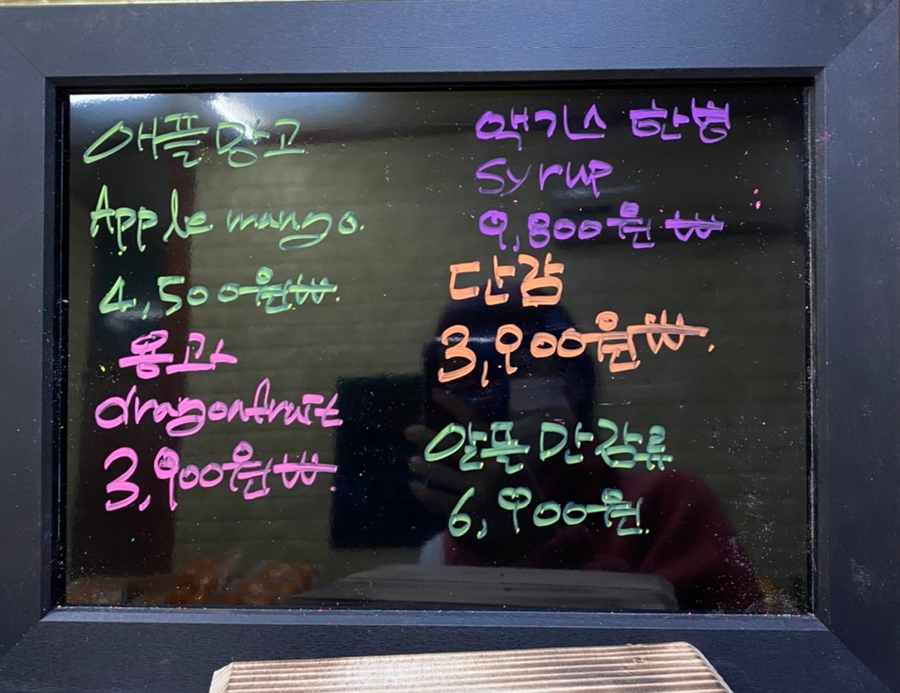 애플망고
Apple mango.
4,500원₩.
용과
dragonfruit
3,900원₩.
액기스 한병
Syrup
9,800원₩
단감
3,900원₩.
알뜰 만감류
6,900원.